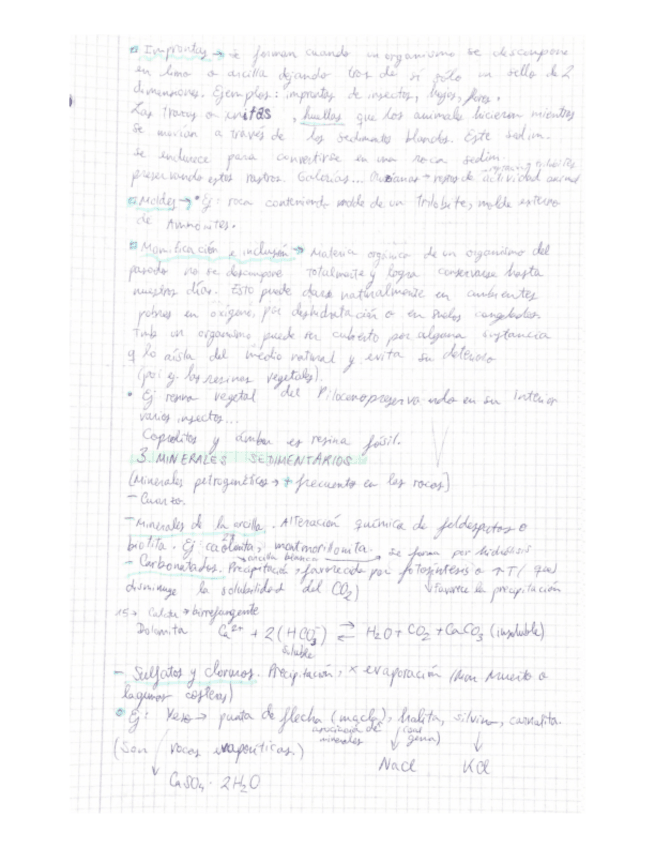 Improntas → se forman cuando un organismo se descompone
en limo o arcilla dejando tras de sí sólo un sello de 2
dimensiones. Ejemplos: improntas de insectos, hojas, flores.
Las trazas on unitas, huellas que los animales hicieron mientras
se movían a través de los sedimentos blandos. Este sedim.
se endurece para convertirse en una roca sedim.
preservando estos rastros Galerías... → restos de actividad animal
Moldes → • Ej: roca conteniendo molde de un Trilobite, molde externo
de Ammonites.
Momificación e inclusión → Materia orgánica de un organismo del
pasado no se descompone totalmente y logra conservarse hasta
nuestros días. Esto puede darse naturalmente en ambientes
pobres en oxígeno, por deshidratación o en suelos congelados
Tmb un organismo puede ser cubierto por alguna sustancia
q lo aísla del medio natural y evita su deterioro
(por ej. las resinas vegetales).
• Ej resina vegetal del preserva en su Interior
varios insectos...
Coprolitos y ámbar es resina fósil.
3. MINERALES SEDIMENTARIOS
(Minerales petrogenéticos → + frecuente en las rocas)
- Cuarzo.
- Minerales de la arcilla. Alteración química de feldespatos o
biotita. Ej: caolinita, montmorillonita. se forma por hidrólisis
arcilla blanca
- Carbonatados. Precipitación → favorecida por fotosíntesis o ↑T (que
disminuye la solubilidad del CO2) ↓ Favorece la precipitación
Calcita → birrefringente
Dolomita Ca2+ + 2(HCO3-) ⇄ H2O + CO2 + CaCO3 (insoluble)
soluble
- Sulfatos y cloruros. Precipitación, x evaporación (Mar Muerto o
lagunas costeras)
• Ej: Yeso → punta de flecha (macla), halita, silvina, carnalita.
asociación de minerales (sal gema)
(Son rocas evaporíticas.) NaCl KCl
CaSO4 · 2H2O